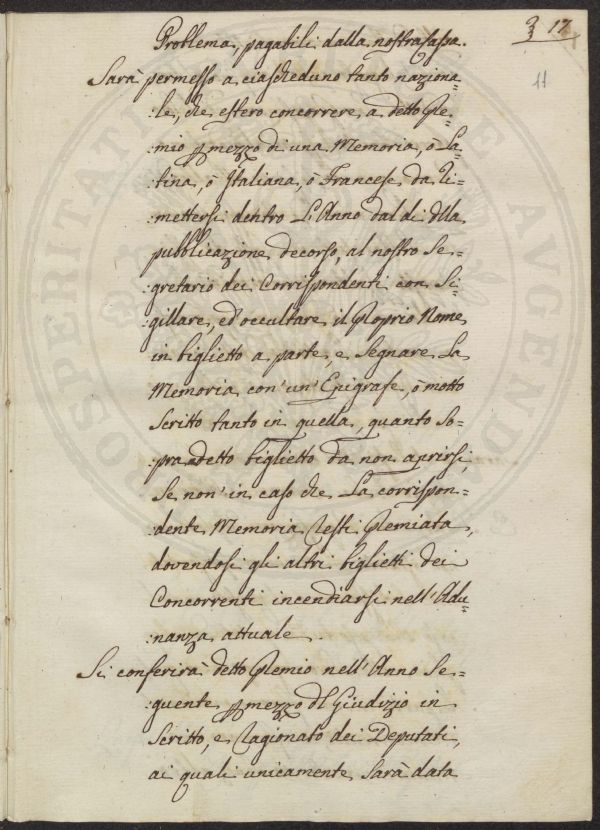 3 17
11
Problema, pagabili dalla nostra Cassa.
Sarà permesso a ciascheduno tanto naziona-
:le, che estero concorrere a detto Pre=
:mio p mezzo di una Memoria, ò La=
:tina, ò Italiana, ò Francese da Ri=
:mettersi dentro L'Anno dal di dlla
pubblicazione decorso, al nostro Se=
:gretario dei Corrispondenti con Si=
:gillare, ed occultare il Proprio Nome
in biglietto a parte, e Segnare La
Memoria con'un'Epigrafe, ò motto
Scritto tanto in quella, quanto So=
:pra detto biglietto da non aprirsi,
Se non'in caso che La corrispon=
:dente Memoria Resti Premiata,
dovendosi gli altri biglietti dei
Concorrenti incendiarsi nell'Adu=
:nanza attuale.
Si conferirà detto Premio nell'Anno Se=
:guente p mezzo dl Giudizio in
Scritto, e Ragionato dei Deputati,
ai quali unicamente Sarà data
PROSPERITATI AUGENDAE